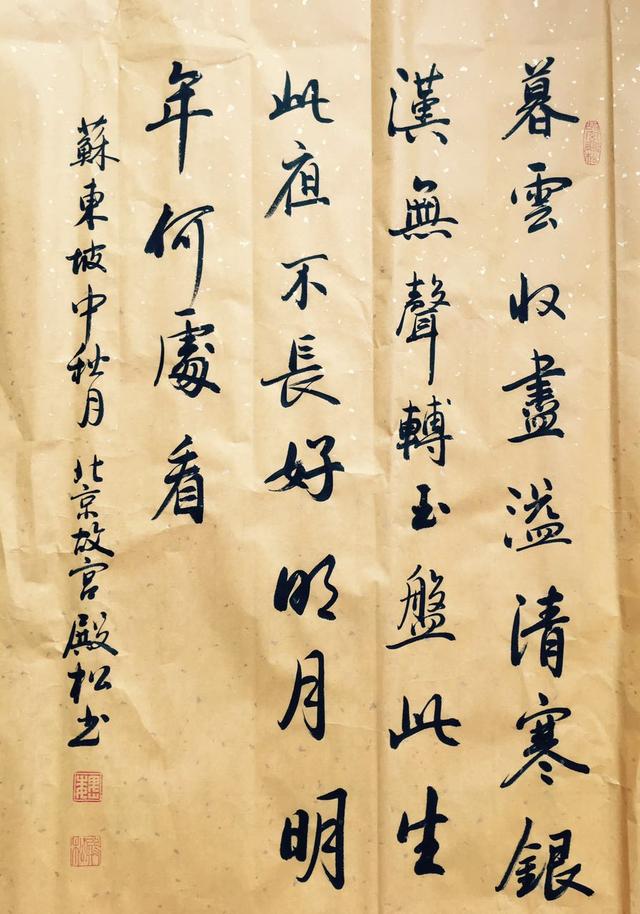 暮雲收盡溢清寒銀
漢無聲轉玉盤此生
此夜不長好明月明
年何處看
蘇東坡中秋月 北京故宮殿松書